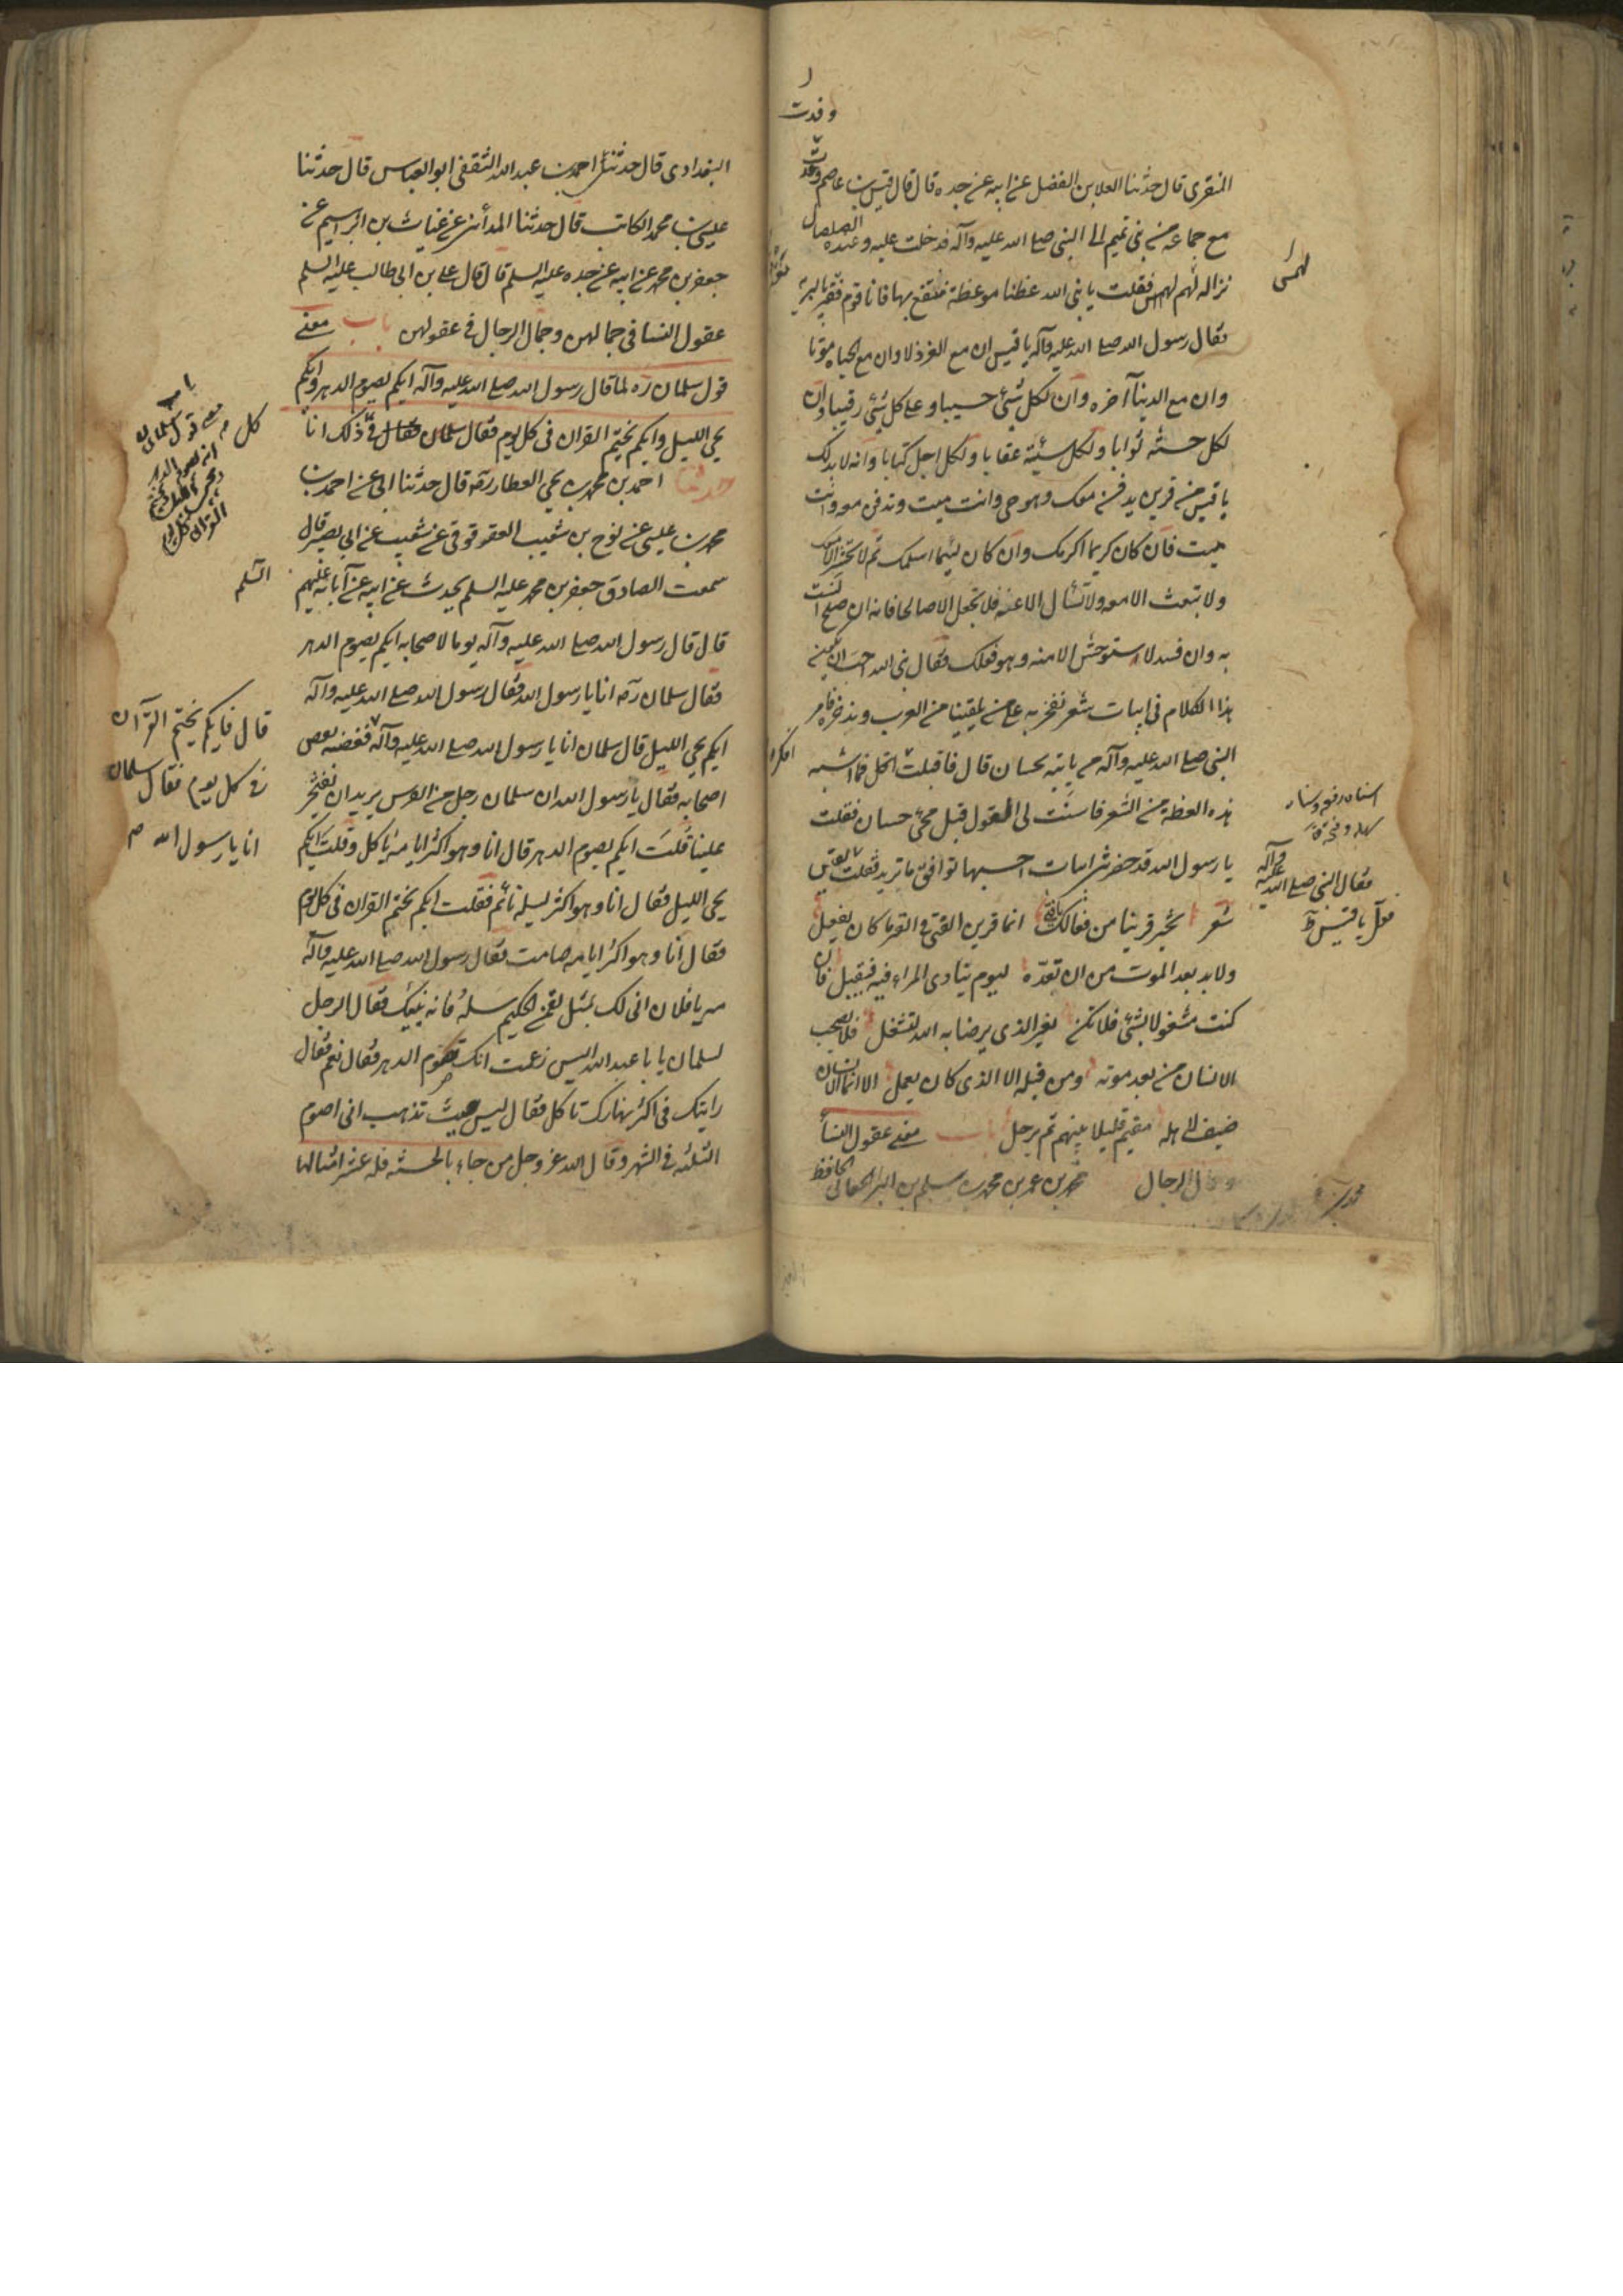 وفدت
المنقرى قال حدثنا العلا بن الفضل عن ابيه عن جده قال قال قيس بن عاصم وفدت
مع جماعة من بنى تميم الى النبى صلى الله عليه وآله فدخلت عليه وعنده الصلصال
فقلت يا نبى الله عظنا موعظة ننتفع بها فانا قوم
فقال رسول الله صلى الله عليه وآله يا قيس ان مع العز ذلا وان مع الحياه موتا
وان مع الدنيا آخره وان لكل شئ حسيبا وعلى كل شئ رقيبا وان
لكل حسنه ثوابا ولكل سيئة عقابا ولكل اجل كتابا وانه لابد لك
يا قيس من قرين يدفن معك وهو حى وانت ميت وتدفن معه وانت
ميت فان كان كريما اكرمك وان كان لئيما اسلمك ثم لا يحشر الا معك
ولا تبعث الا معه ولا تسأل الا عنه فلا تجعل الا صالحا فانه ان صلح انست
به وان فسد لا تستوحش الا منه وهو فعلك فقال يا نبى الله احب ان يكون
هذا الكلام فى ابيات شعر نفخر به على من يلينا من العرب وندخره فامر
النبى صلى الله عليه وآله من ياتيه بحسان قال فاقبلت افكر فيما اشبه
هذه العظة من الشعر فاستتب لى القول قبل مجئ حسان فقلت
يا رسول الله قد حضرتنى ابيات احسبها توافق ما تريد فقلت
فقال النبى صلى الله عليه وآله
قل يا قيس
شعر تخير قرينا من فعالك انما قرين الفتى فى القبر ما كان يفعل
ولابد بعد الموت من ان تعده ليوم ينادى المرء فيه فيقبل فان
كنت مشغولا بشئ فلا تكن بغير الذى يرضا به الله تشغل فلن يصحب
الانسان من بعد موته ومن قبله الا الذى كان يعمل الا انما الانسان
ضيف لاهله مقيم قليلا بينهم ثم يرحل باب معنى عقول النسأ
وجمال الرجال محمد بن عمر بن محمد بن سلم بن البرا الجعابى الحافظ
البغدادى قال حدثنا احمد بن عبد الله الثقفى ابو العباس قال حدثنا
عيسى بن محمد الكاتب قال حدثنا المدائنى عن غياث بن ابراهيم عن
جعفر بن محمد عن ابيه عن جده عليه السلم قال قال على بن ابى طالب عليه السلم
عقول النسا فى جمالهن وجمال الرجال فى عقولهن باب معنى
قول سلمان ره لما قال رسول الله صلى الله عليه وآله ايكم يصوم الدهر وايكم
يحيى الليل وايكم يختم القران فى كل يوم فقال سلمان فى كل ذلك انا
حدثنا احمد بن محمد بن يحيى العطار ره قال حدثنا ابى عن احمد بن
محمد بن عيسى عن نوح بن شعيب العقرقوفى عن شعيب عن ابى بصير قال
سمعت الصادق جعفر بن محمد عليه السلم يحدث عن ابيه عن آبائه عليهم
السلم
قال قال رسول الله صلى الله عليه وآله يوما لاصحابه ايكم يصوم الدهر
فقال سلمان ره انا يا رسول الله فقال رسول الله صلى الله عليه وآله
ايكم يحيى الليل قال سلمان انا يا رسول الله صلى الله عليه وآله فغضب بعض
قال فايكم يختم القرآن
فى كل يوم فقال سلمان
انا يا رسول الله
اصحابه فقال يا رسول الله ان سلمان رجل من الفرس يريد ان يفتخر
علينا قلت ايكم يصوم الدهر قال انا وهو اكثر ايامه ياكل وقلت ايكم
يحيى الليل فقال انا وهو اكثر ليله نائم فقلت ايكم يختم القران فى كل يوم
فقال انا وهو اكثر ايامه صامت فقال رسول الله صلى الله عليه وآله
مه يا فلان انى لك بمثل لقمن الحكيم سله فانه ينبئك فقال الرجل
لسلمان يا با عبد الله اليس زعمت انك تصوم الدهر فقال نعم فقال
رايتك فى اكثر نهارك تاكل فقال ليس حيث تذهب انى اصوم
الثلثه فى الشهر وقال الله عز وجل من جاء بالحسنه فله عشر امثالها